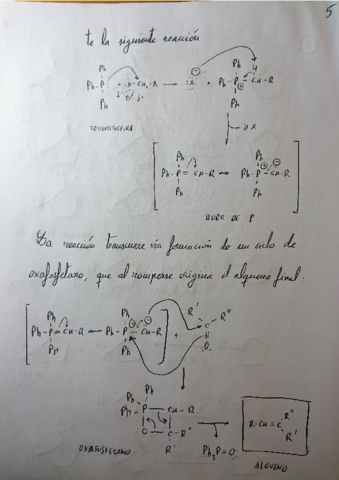 5
te la siguiente reacción
Ph Ph
Ph-P + X-CH₂-R → X⊖ + Ph-P⊕-CH-R
Ph Ph
H
- HX
Ph Ph
Ph-P=CH-R ↔ Ph-P⊕-CH⊖-R
Ph Ph
ILURO DE P
La reacción transcurre vía formación de un ciclo de
oxafosfetano, que al romperse origina el alqueno final:
Ph Ph R' R"
Ph-P=CH-R ↔ Ph-P-CH-R + C
Ph Ph O
Ph Ph
Ph-P-CH-R
O-C-R"
R'
R-CH=C R" R'
OXAFOSFETANO
Ph₃P=O
ALQUENO